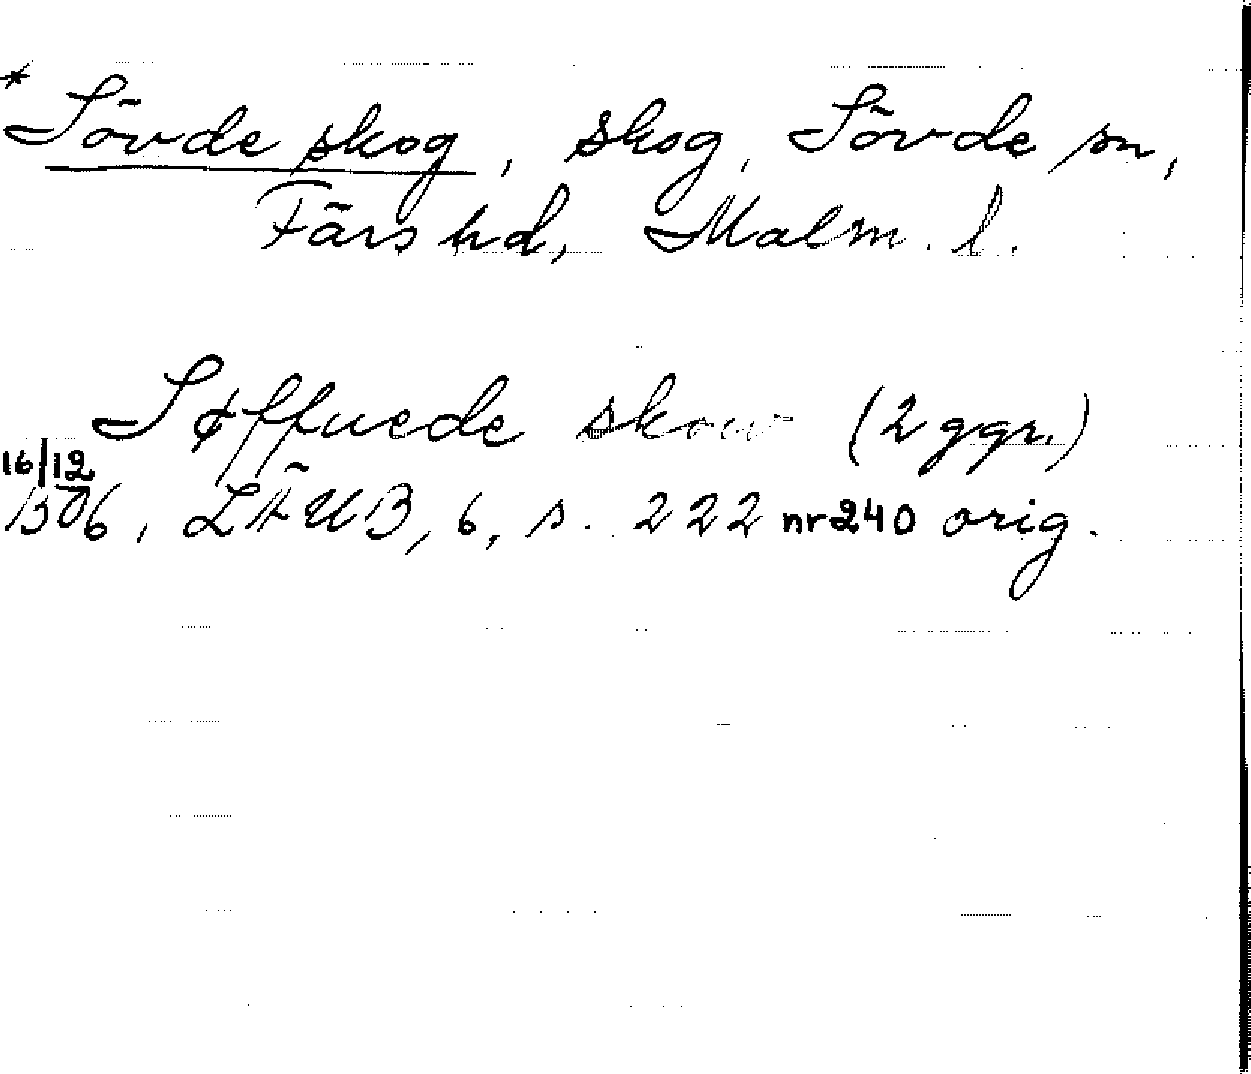 * Sövde skog, skog, Sövde sn,
Färs hd, Malm. l.
Søffuede skow (2 ggr.)
16/12
1506, LÄUB, 6, s. 222 nr 240 orig.